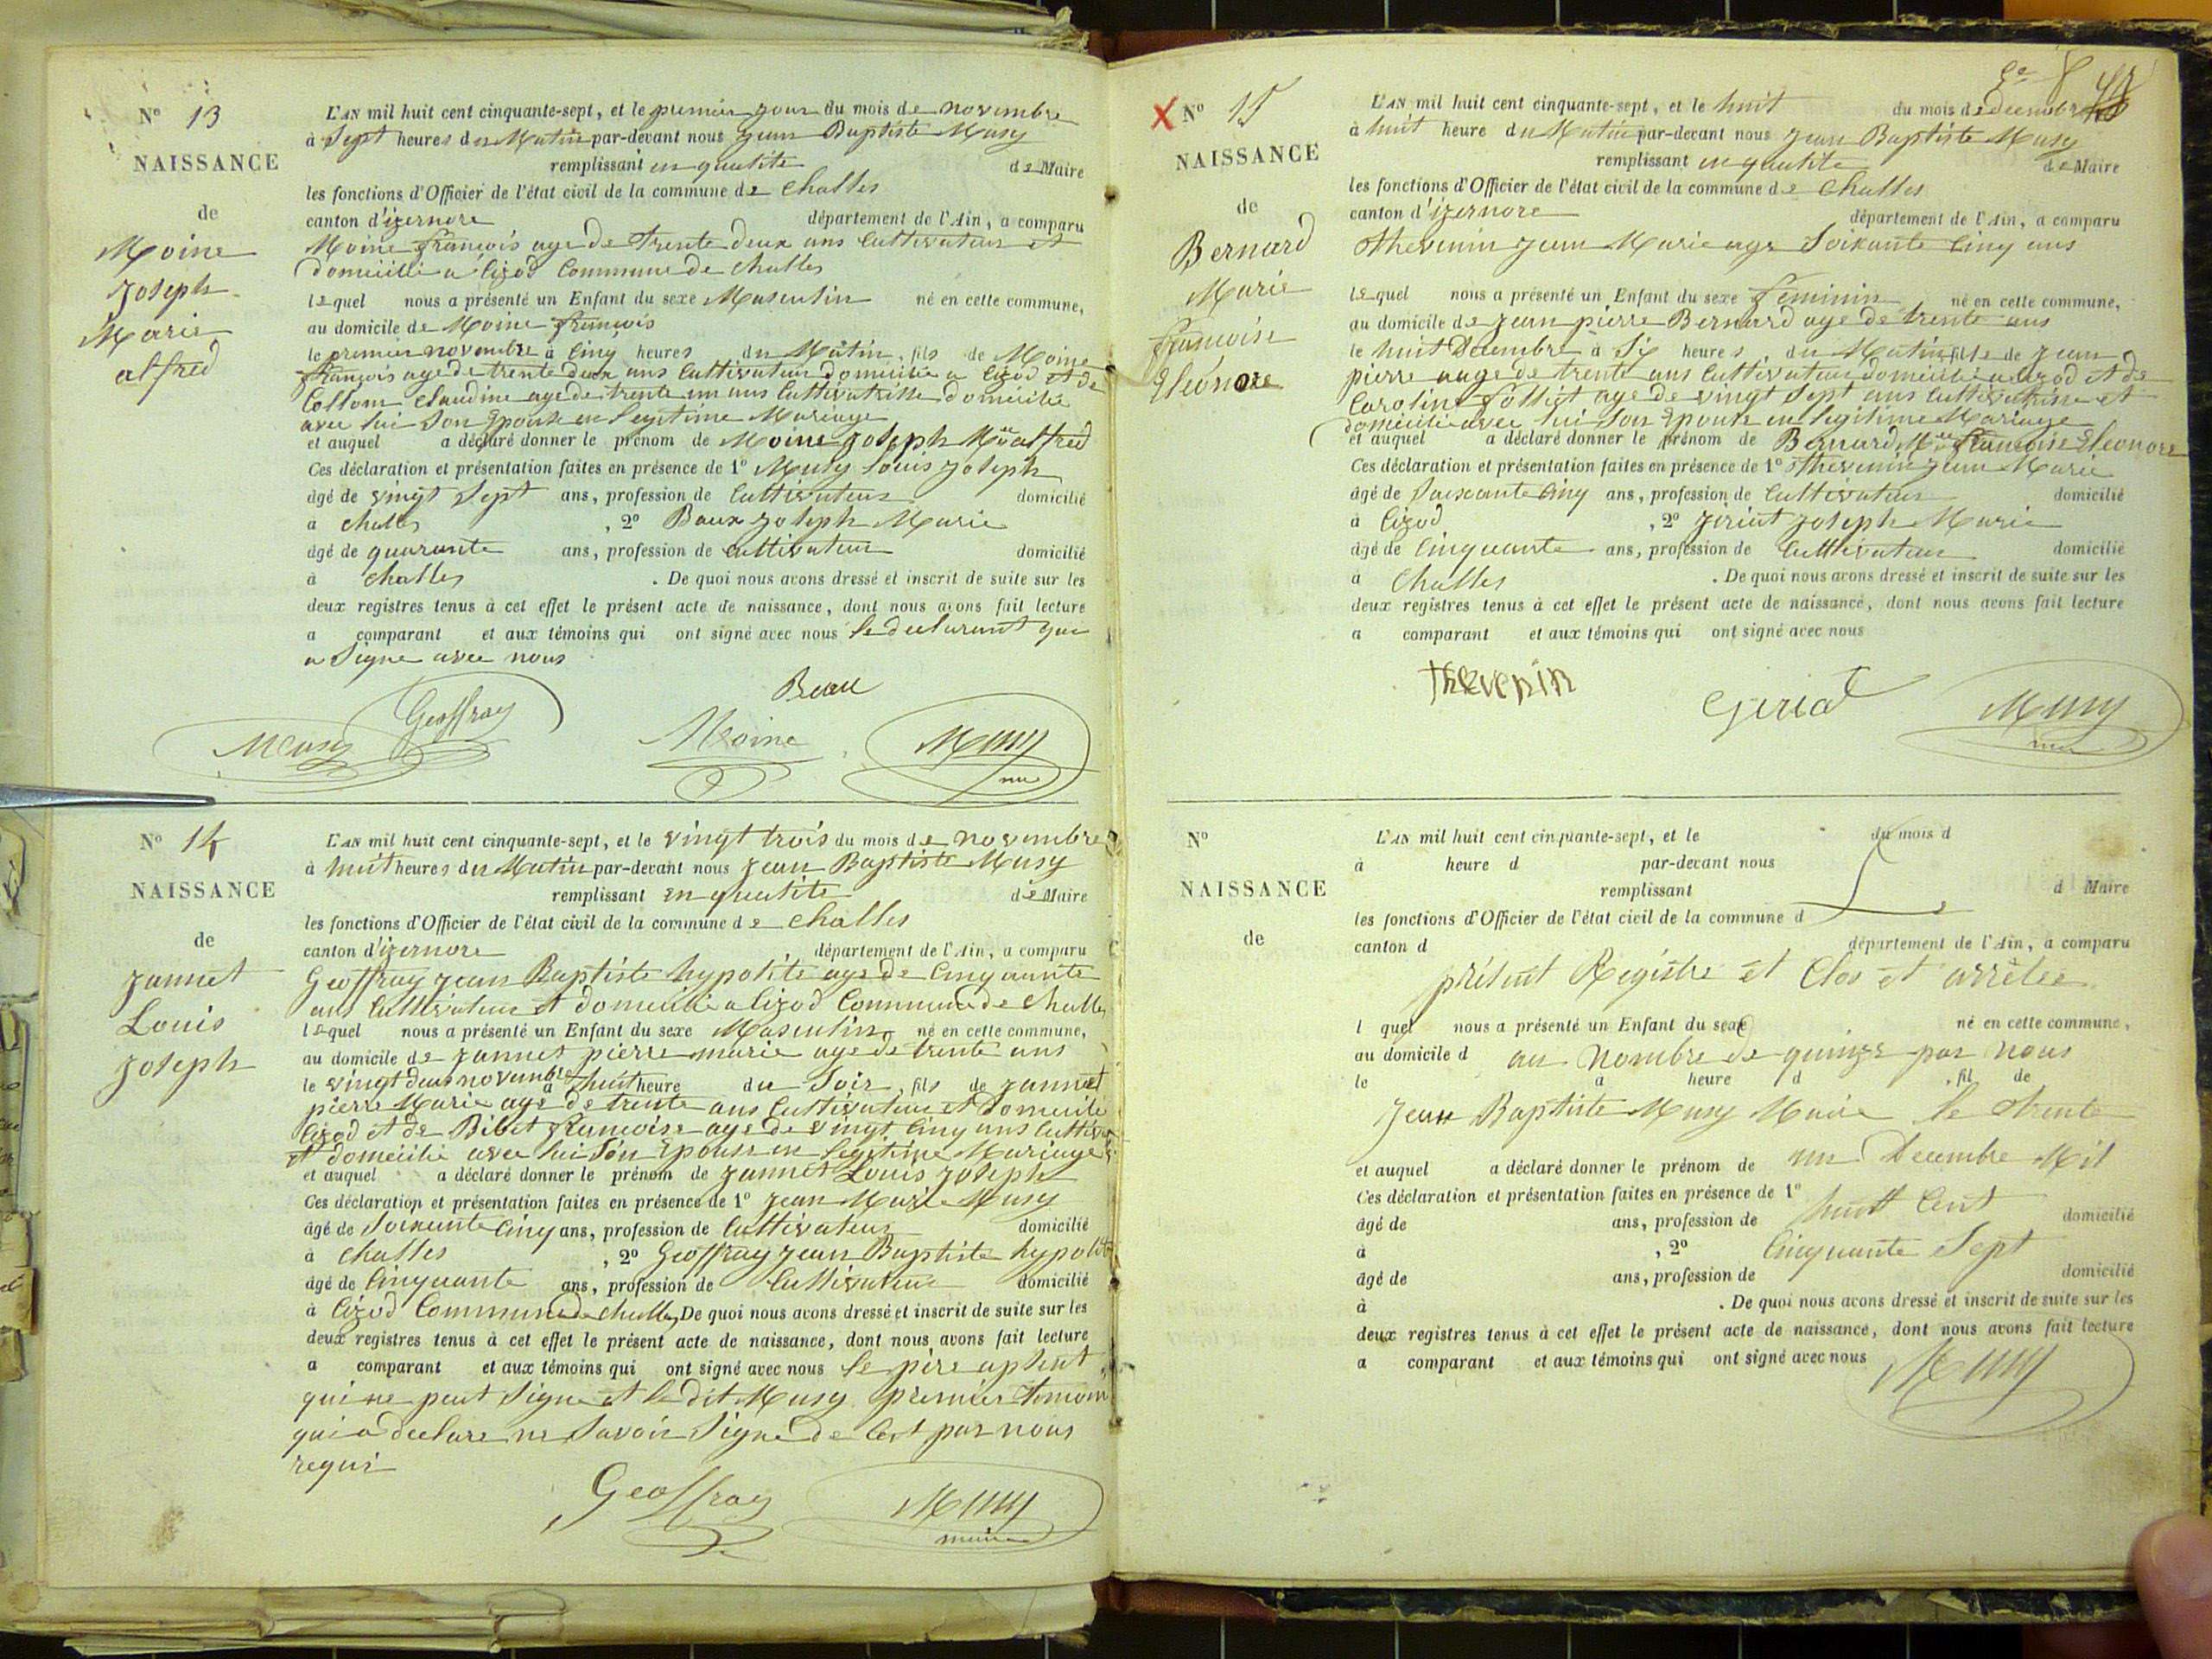 N° 13
NAISSANCE
de
Moine
Joseph
Marie
alfred
L'AN mil huit cent cinquante-sept, et le premier jour du mois de novembre
à Sept heures du Matin par-devant nous jean Baptiste Musy
remplissant en qualité de Maire
les fonctions d'Officier de l'état civil de la commune de challes
canton d'izernore département de l'Ain, a comparu
Moine françois age de trente deux ans Cultivateur et
domicilié a Cizod Commune de challes
lequel nous a présenté un Enfant du sexe Masculin né en cette commune,
au domicile de Moine françois
le premier novembre à cinq heures du Matin, fils de Moine
françois age de trente deux ans Cultivateur domicilié a Cizod et de
Collom Claudine age de trente un ans Cultivatrisse domicilié
avec lui Son Epouse en legitime Mariage
et auquel a déclaré donner le prénom de Moine joseph Mie alfred
Ces déclaration et présentation faites en présence de 1° Musy Louis joseph
âgé de vingt Sept ans, profession de Cultivateur domicilié
à challes , 2° Baux joseph Marie
âgé de quarante ans, profession de Cultivateur domicilié
à challes . De quoi nous avons dressé et inscrit de suite sur les
deux registres tenus à cet effet le présent acte de naissance, dont nous avons fait lecture
a comparant et aux témoins qui ont signé avec nous le declarant qui
a Signe avec nous
Beau
Geoffray
Musy Moine Musy
N° 14
NAISSANCE
de
jannet
Louis
joseph
L'AN mil huit cent cinquante-sept, et le vingt trois du mois de novembre
à huit heures du Matin par-devant nous jean Baptiste Musy
remplissant en qualité de Maire
les fonctions d'Officier de l'état civil de la commune de challes
canton d'izernore département de l'Ain, a comparu
Geoffray jean Baptiste hypolite age de Cinquante
ans Cultivateur et domicilié a Cizod Commune de challes
lequel nous a présenté un Enfant du sexe Masculin né en cette commune,
au domicile de jannet pierre marie age de trente ans
le vingt deux novembre à huit heure du Soir, fils de jannet
pierre Marie age de trente ans Cultivateur et domicilie
Cizod et de Bibet françoise age de vingt Cinq ans
et domicilié avec lui Son Epouse en legitime Mariage
et auquel a déclaré donner le prénom de jannet Louis joseph
Ces déclaration et présentation faites en présence de 1° jean Marie Musy
âgé de Soixante Cinq ans, profession de Cultivateur domicilié
à challes , 2° Geoffray jean Baptiste hypolite
âgé de Cinquante ans, profession de Cultivateur domicilié
à Cizod Commune de challes De quoi nous avons dressé et inscrit de suite sur les
deux registres tenus à cet effet le présent acte de naissance, dont nous avons fait lecture
a comparant et aux témoins qui ont signé avec nous le père
qui ne peut Signe et le dit Musy premier temoin
qui a declare ne Savoir Signe de Ce par nous
requi
Geoffray Musy
maire
N° 15
NAISSANCE
de
Bernard
Marie
françoise
Eléonore
L'AN mil huit cent cinquante-sept, et le huit du mois de decembre
à huit heure du Matin par-devant nous jean Baptiste Musy
remplissant en qualité de Maire
les fonctions d'Officier de l'état civil de la commune de challes
canton d'izernore département de l'Ain, a comparu
thevenin jean Marie age Soixante Cinq ans
lequel nous a présenté un Enfant du sexe feminin, né en cette commune,
au domicile de jean pierre Bernard age de trente ans
le huit Decembre à Six heures, du Matin fille de jean
pierre auge de trente ans Cultivateur domicilié a Cizod et de
Caroline follliet age de vingt Sept ans Cultivatrisse et
domicilié avec lui Son Epouse en legitime Mariage
et auquel a déclaré donner le prénom de Bernard Mie françoise Eleonore
Ces déclaration et présentation faites en présence de 1° thevenin jean Marie
âgé de Soixante Cinq ans, profession de Cultivateur domicilié
à Cizod , 2° joseph Marie
âgé de Cinquante ans, profession de Cultivateur domicilié
à Challes . De quoi nous avons dressé et inscrit de suite sur les
deux registres tenus à cet effet le présent acte de naissance, dont nous avons fait lecture
a comparant et aux témoins qui ont signé avec nous
thevenin Musy
N°
NAISSANCE
de
L'AN mil huit cent cinquante-sept, et le du mois d
à heure d par-devant nous
remplissant d Maire
les fonctions d'Officier de l'état civil de la commune d
canton d département de l'Ain, a comparu
présent Registre et Clos et arrêtée
l quel nous a présenté un Enfant du sexe né en cette commune,
au domicile d au Nombre de quinze par Nous
le à heure d , fil de
jean Baptiste Musy Maire le trente
et auquel a déclaré donner le prénom de un Decembre Mil
Ces déclaration et présentation faites en présence de 1°
huit Cent
âgé de ans, profession de domicilié
à , 2° Cinquante Sept
âgé de ans, profession de domicilié
à . De quoi nous avons dressé et inscrit de suite sur les
deux registres tenus à cet effet le présent acte de naissance, dont nous avons fait lecture
a comparant et aux témoins qui ont signé avec nous
Musy